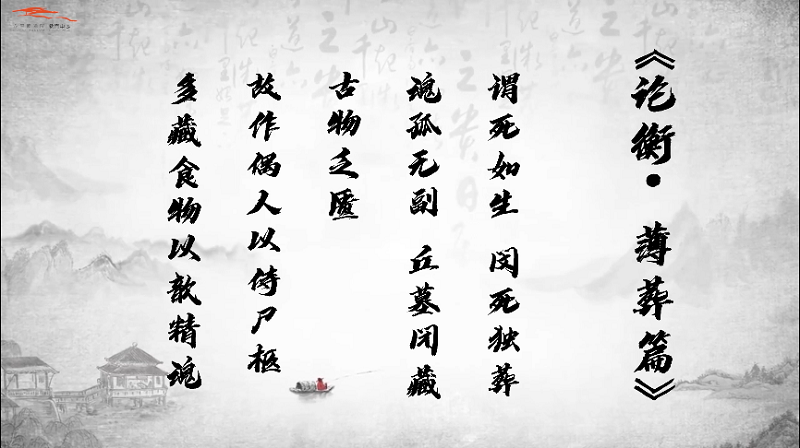 《论衡·薄葬篇》
谓死如生 闵死独葬
魂孤无副 丘墓闭藏
古物乏匮
故作偶人以侍尸柩
多藏食物以歆精魂